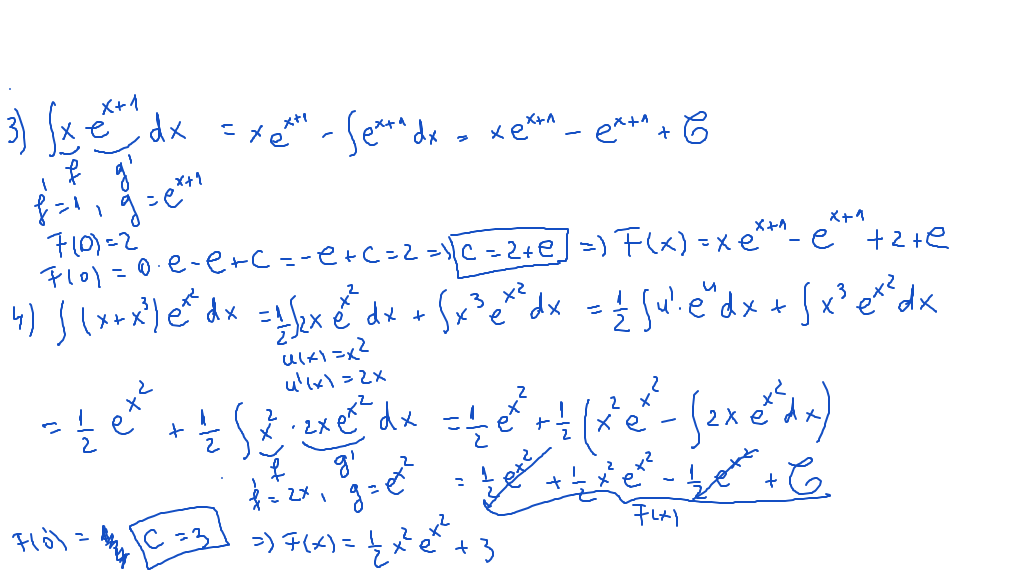 3) ∫ x e^{x+1} dx = x e^{x+1} - ∫ e^{x+1} dx = x e^{x+1} - e^{x+1} + C
f g'
f' = 1, g = e^{x+1}
F(0) = 2
F(0) = 0·e - e + c = -e + c = 2 => c = 2+e => F(x) = x e^{x+1} - e^{x+1} + 2 + e
4) ∫ (x+x^3) e^{x^2} dx = 1/2 ∫ 2x e^{x^2} dx + ∫ x^3 e^{x^2} dx = 1/2 ∫ u' · e^u dx + ∫ x^3 e^{x^2} dx
u(x) = x^2
u'(x) = 2x
= 1/2 e^{x^2} + 1/2 ∫ x^2 · 2x e^{x^2} dx = 1/2 e^{x^2} + 1/2 (x^2 e^{x^2} - ∫ 2x e^{x^2} dx)
f g'
f' = 2x, g = e^{x^2} = 1/2 e^{x^2} + 1/2 x^2 e^{x^2} - 1/2 e^{x^2} + C
F(x)
F(0) = C = 3 => F(x) = 1/2 x^2 e^{x^2} + 3